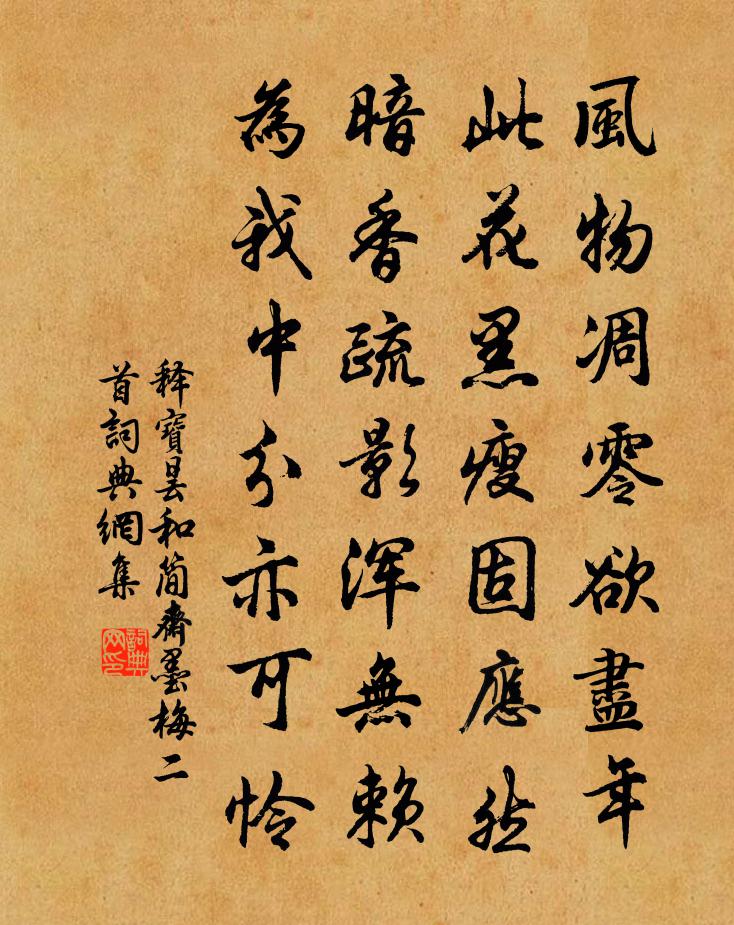 風物凋零欲盡年
此花黑瘦固應然
暗香疏影渾無賴
為我中分亦可憐
释寶昙和简齋墨梅二
首詞典網集
詞典网印